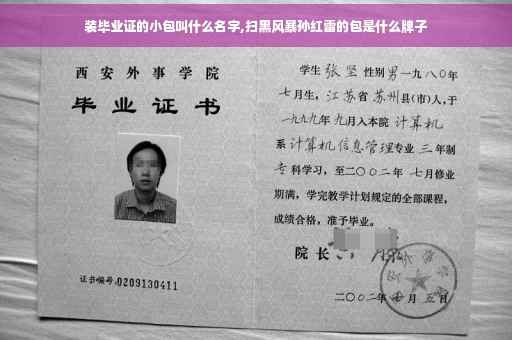 装毕业证的小包叫什么名字,扫黑风暴孙红雷的包是什么牌子
西安外事学院
毕业证书
证书编号:0209130411
学生 张坚 性别男 一九八〇年
七月生，江苏省 苏州县(市)人,于
一九九九年 九月入本院 计算机
系 计算机信息管理专业 三 年制
专 科学习，至二〇〇二年 七月修业
期满，学完教学计划规定的全部课程，
成绩合格，准予毕业。
院长
二〇〇二年 七 月 五 日